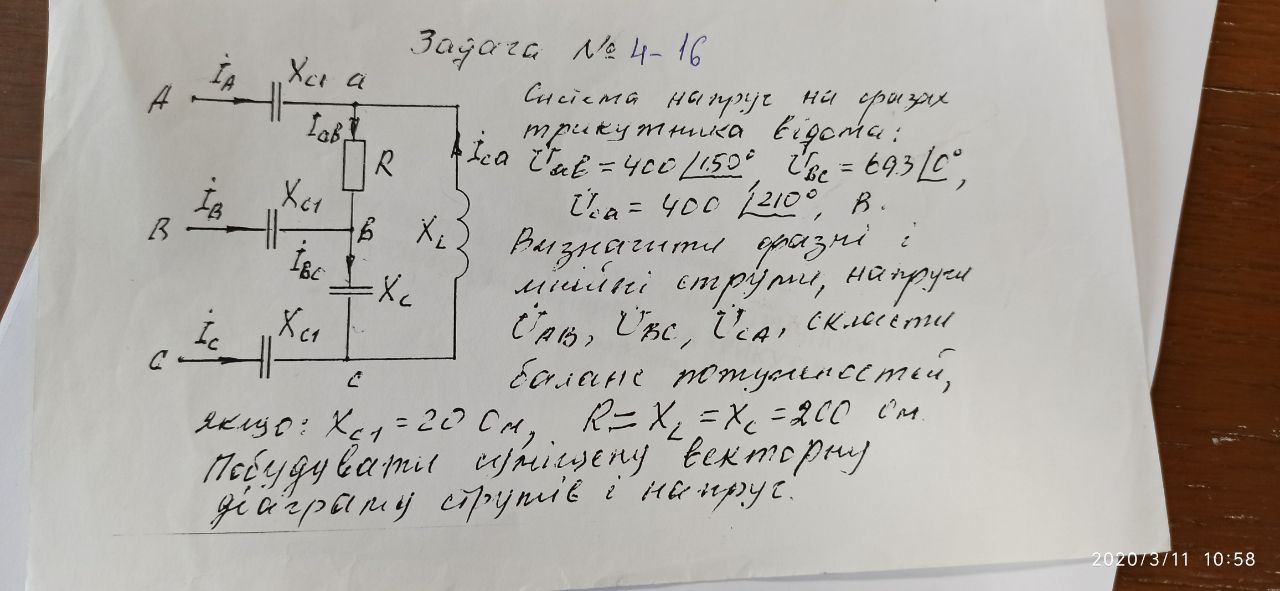 Задача № 4-16
A İA XC1 a
İaв R İca
B İB XC1 в XL
İвс XC
C İC XC1 c
Система напруг на фазах
трикутника відома:
U̇ав = 400 ∠150°, U̇вс = 693 ∠0°,
U̇са = 400 ∠210°, В.
Визначити фазні і
лінійні струми, напруги
U̇AB, U̇BC, U̇CA, скласти
баланс потужностей,
якщо: XC1 = 20 Ом, R = XL = XC = 200 Ом.
Побудувати суміщену векторну
діаграму струмів і напруг.
2020/3/11 10:58